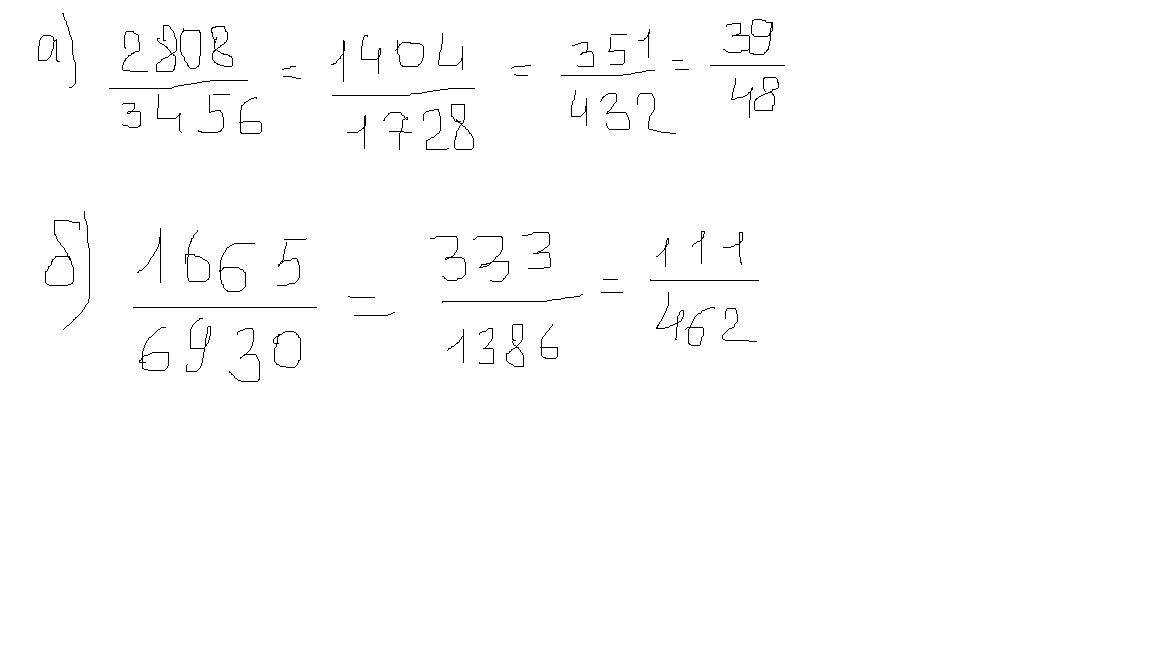 а) 2808/3456 = 1404/1728 = 351/432 = 39/48
б) 1665/6930 = 333/1386 = 111/462